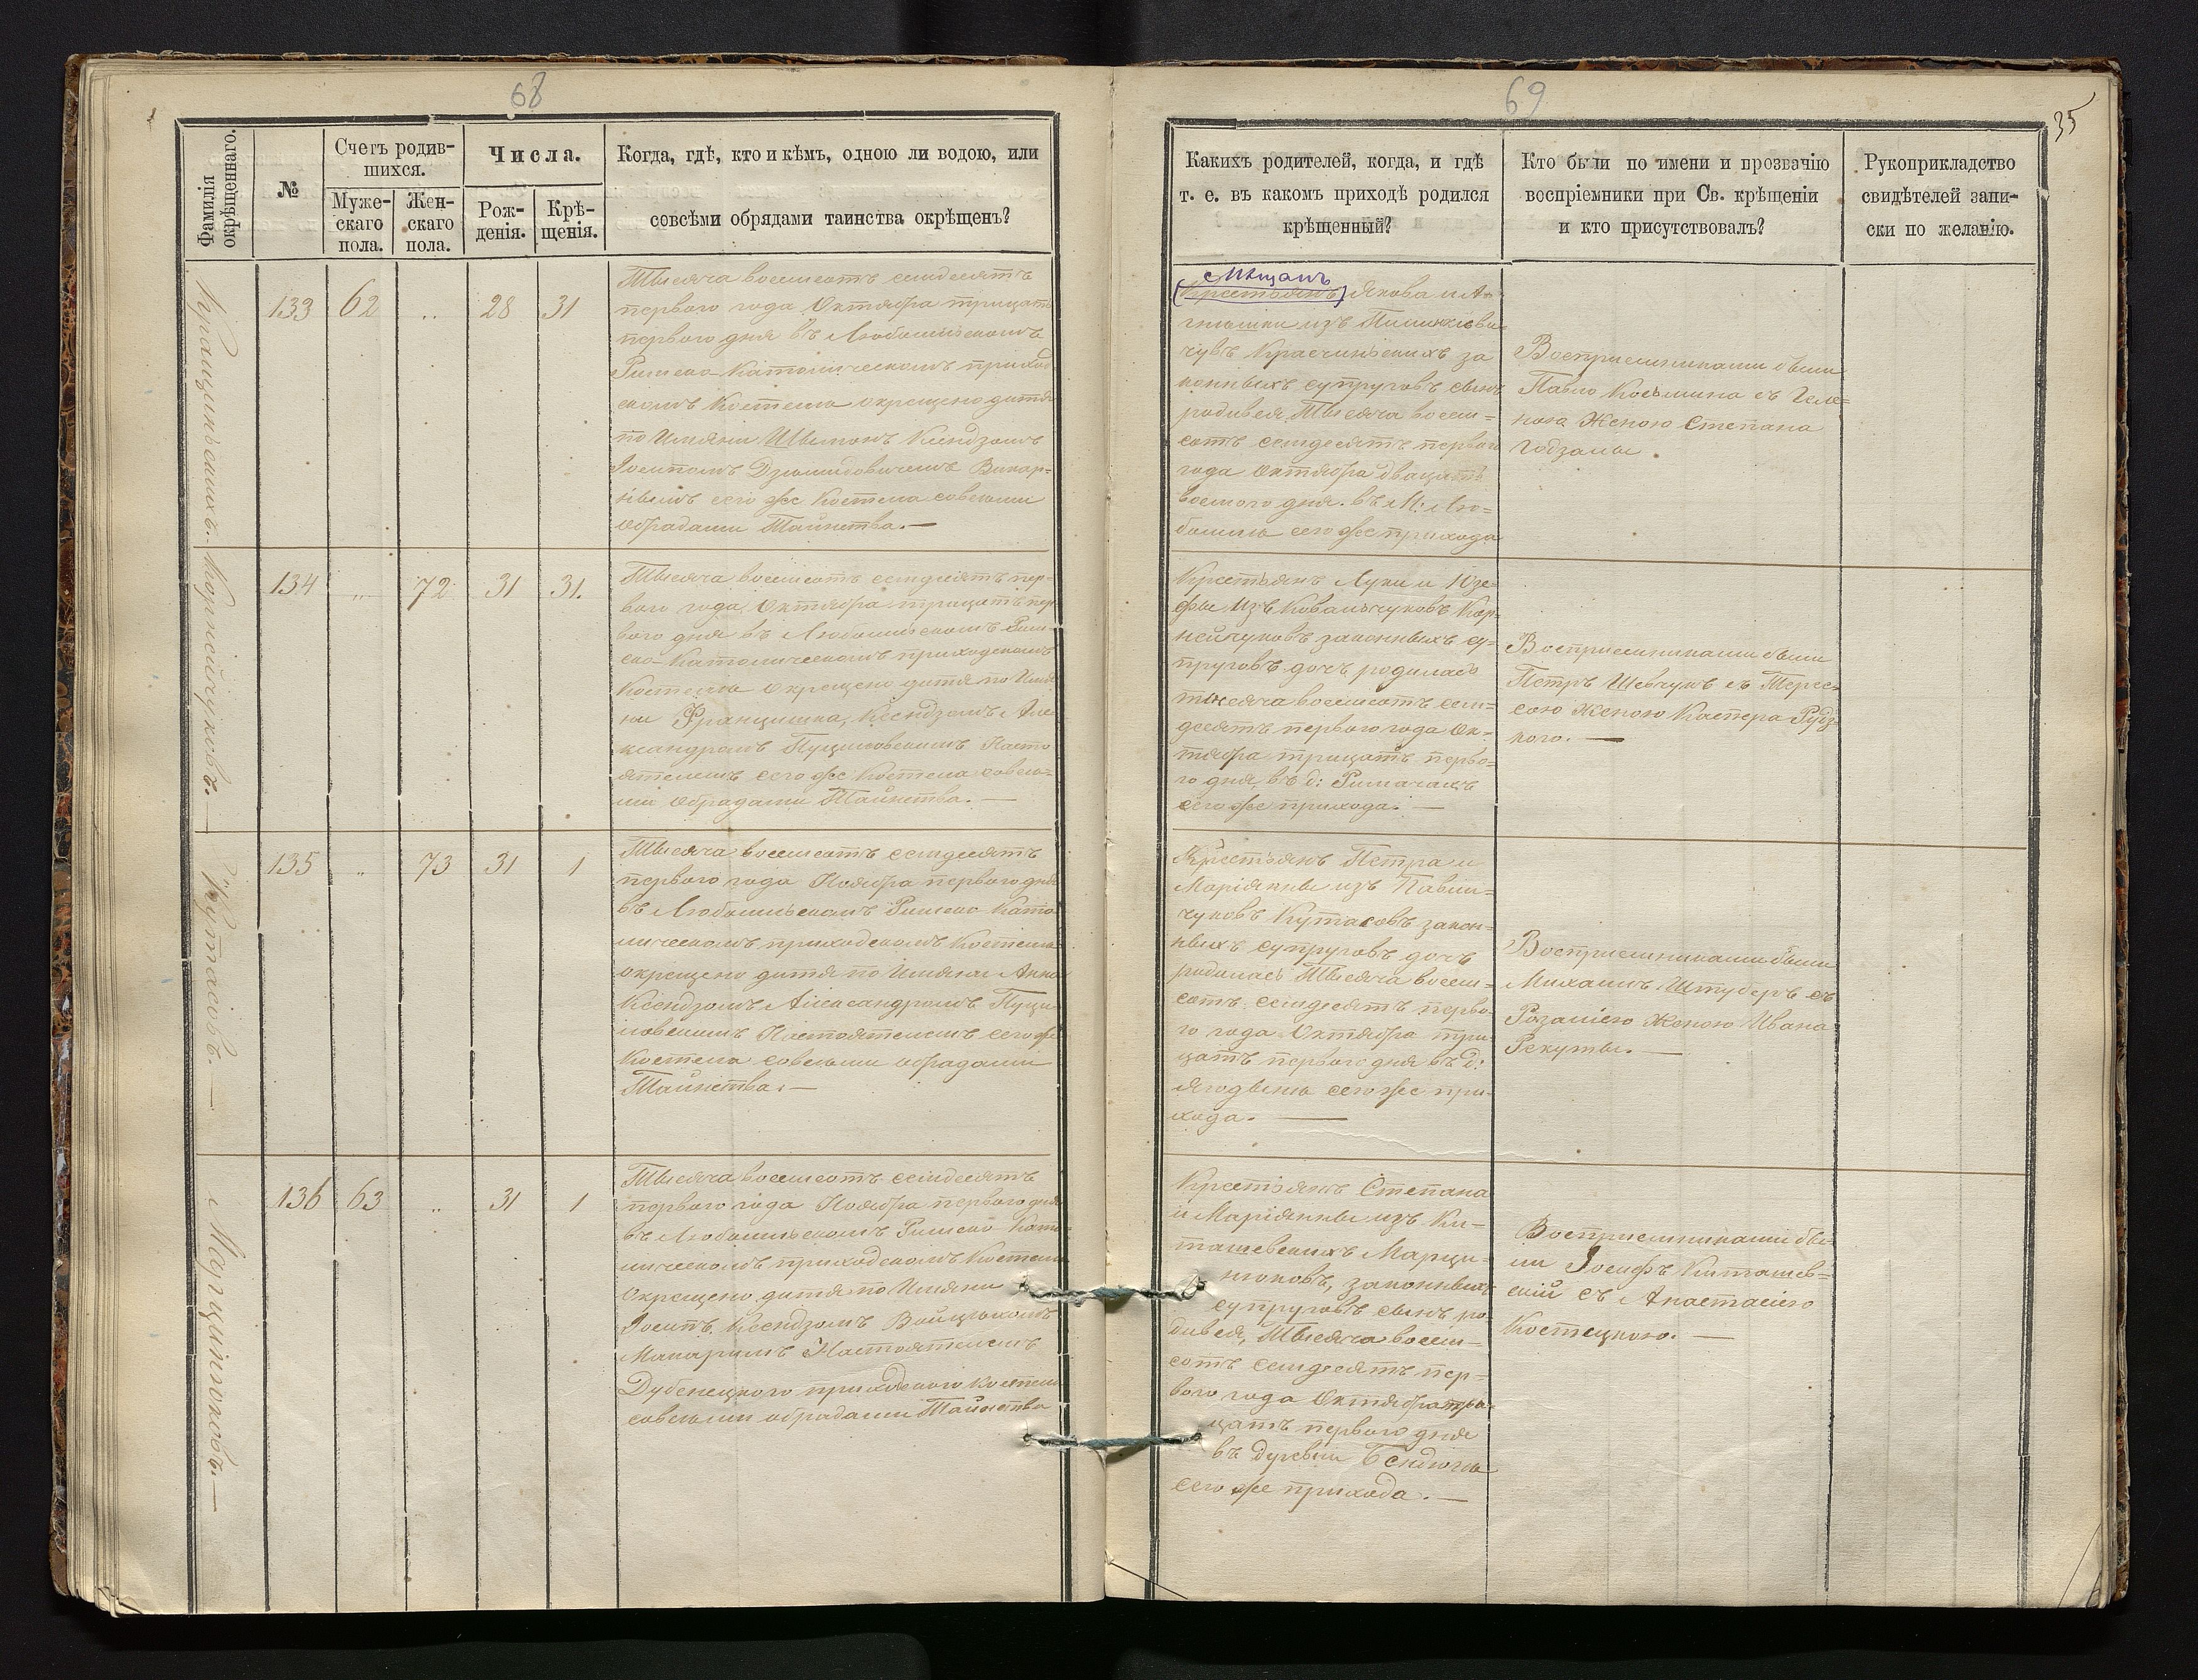 68
Фамилія окрѣщеннаго.
№
Счетъ родив-
шихся.
Муже-
скаго
пола.
Жен-
скаго
пола.
Числа.
Рож-
денія.
Крѣ-
щенія.
Когда, гдѣ, кто и кѣмъ, одною ли водою, или
совсѣми обрядами таинства окрѣщенъ?
133 62 „ 28 31
Тысяча восемсотъ семдесятъ
первого года Октября трицатъ
первого дня въ Любомльскомъ
Римско-Католическомъ приход
скомъ Костелѣ окрещено дитя
по Имяни Шымонъ Ксендзомъ
Викар-
сего же Костела совсеми
обрадами Таинства.—
Корнейчуковъ.—
134 „ 72 31 31.
Тысяча восемсотъ семдесятъ пер-
вого года Октября трицатъ пер
вого дня въ Любомльскомъ Рим-
ско-Католическомъ приходскомъ
Костелѣ окрещено дитя по Имя
ни Францишка, Ксендзомъ Але
ксандромъ Насто
ятелемъ сего же Костела совсе-
ми обрадами Таинства.—
Кутасовъ.—
135 „ 73 31 1
Тысяча восемсотъ семдесятъ
первого года Ноября первого дня
въ Любомльскомъ Римско Като
лическомъ приходскомъ Костелѣ
окрещено дитя по Имяни Анна
Ксендзомъ Александромъ
Настоятелемъ сего же
Костела совсеми обрадами
Таинства.—
Марцинюковъ.—
136 63 „ 31 1
Тысяча восемсотъ семдесятъ
первого года Ноября первого дня
въ Любомльскомъ Римско Като
лическомъ приходскомъ Костелѣ
окрещено дитя по Имяни
Іосипъ Ксендзомъ
Настоятелемъ
Дубенецкого приходского Костела
совсеми обрадами Таинства
69
35
Какихъ родителей, когда, и гдѣ
т. е. въ какомъ приходѣ родился
крѣщенный?
Кто были по имени и прозвачію
воспріемники при Св. крѣщеніи
и кто присутствовалъ?
Рукоприкладство
свидѣтелей запи-
ски по желанію.
Мѣщанъ
(Крестьянъ) Якова и А-
изъ
за
конныхъ супруговъ сынъ
родився Тысяча восем-
сотъ семдесятъ первого
года Октября двацатъ
восмого дня. въ М: Лю-
бомлѣ сего же прихода
Восприемниками были
Павло Косьмина съ Геле-
ною Женою Степана
Крестьянъ Луки и Юзе-
фы изъ Ковальчуковъ Кор-
нейчуковъ законныхъ су-
пруговъ дочъ родилась
тысяча восемсотъ сем-
десятъ первого года Ок-
тября трицатъ перво-
го дня, въ д: Римачахъ
сего же прихода.—
Восприемниками были
Петръ Шевчукъ съ Тере-
сою Женою Каспера Рудз-
кого.—
Крестьянъ Петра и
Маріянны изъ Павлю-
чуковъ Кутасовъ закон-
ныхъ супруговъ дочъ
родилась Тысяча восем-
сотъ семдесятъ перво-
го года Октября три-
цатъ первого дня въ д:
Ягодынѣ сего же при-
хода.—
Восприемниками были
Михаилъ Штуберъ съ
Розаліею Женою Ивана
Рекуты.—
Крестьянъ Степана
и Маріянны изъ Ки-
ташевскихъ Марци-
нюковъ, законныхъ
супруговъ сынъ ро-
дився, Тысяча восем-
сотъ семдесятъ пер-
вого года Октября три-
цатъ первого дня
въ Дуревни Бендюгѣ
сего же прихода.—
Восприемниками бы-
ли Іосифъ Киташев-
скій съ Анастасіею
Костецкою.—